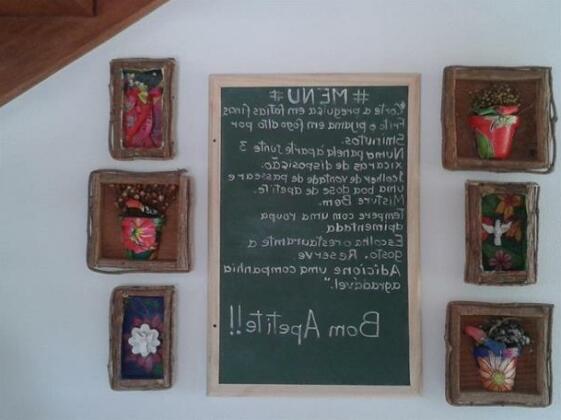 # MENU #
"Corte a preguiça em fatias finas
Frite o pijama em fogo alto por
5minutos.
Numa panela à parte junte 3
xicaras de disposição.
1colher de vontade de passear e
uma boa dose de apetite.
Misture Bem.
Tempere com uma roupa
apimentada
Escolha o restaurante a
gosto. Reserve
Adicione uma companhia
agradável".
Bom Apetite!!